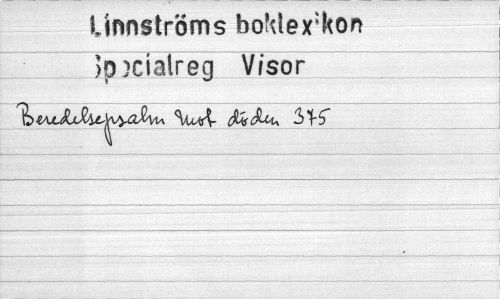 Linnströms boklexikon
Specialreg Visor
Beredelsepsalm mot döden 375